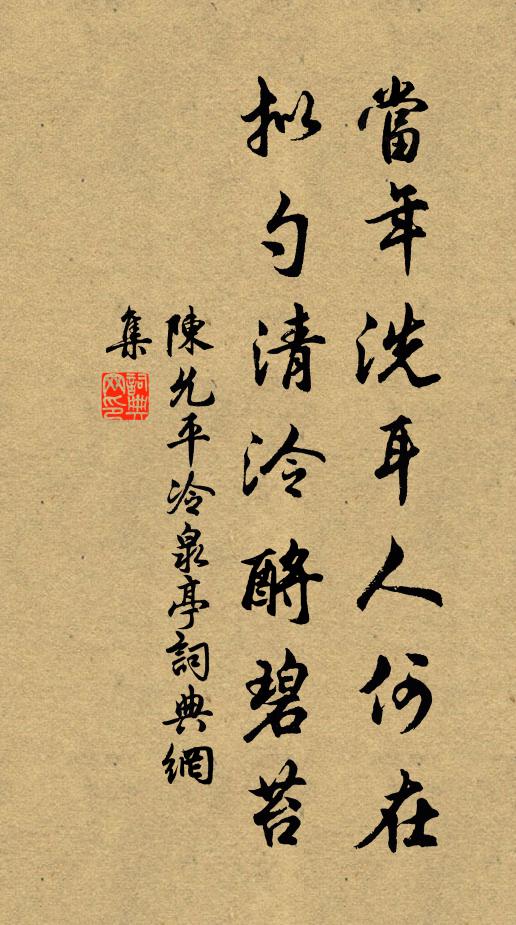 當年洗耳人何在
拟勺清泠酹碧苔
陳允平冷泉亭詞典網
集
詞典網